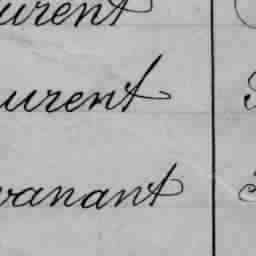 urent
urent
vanant